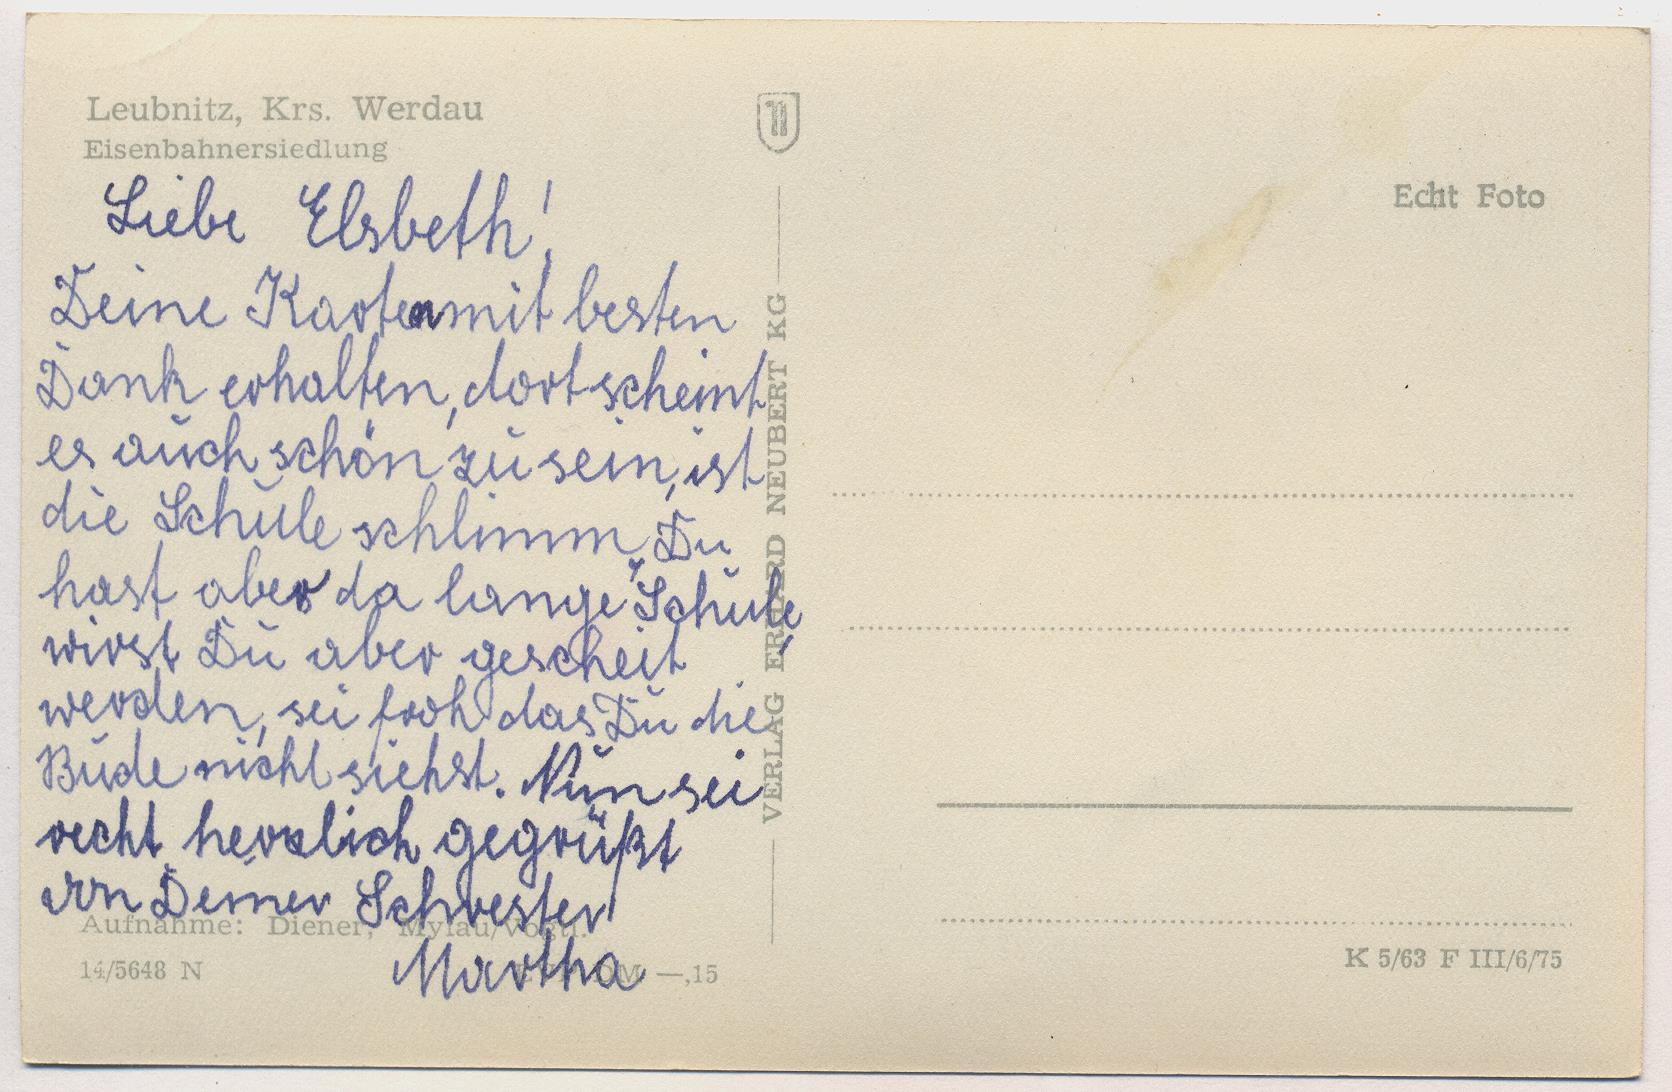 Leubnitz, Krs. Werdau
Eisenbahnersiedlung
Liebe Elsbeth!
Deine Karten mit besten
Dank erhalten, dort scheint
es auch schön zu sein, ist
die Schule schlimm, Du
hast aber da lange Schule,
wirst Du aber gescheit
werden, sei froh das Du die
Bude nicht siehst. Nun sei
recht herzlich gegrüßt
von Deiner Schwester
Martha
Aufnahme: Diener, Mylau/Vogtl.
14/5648 N
DM —,15
VERLAG ERHARD NEUBERT KG
Echt Foto
K 5/63 F III/6/75